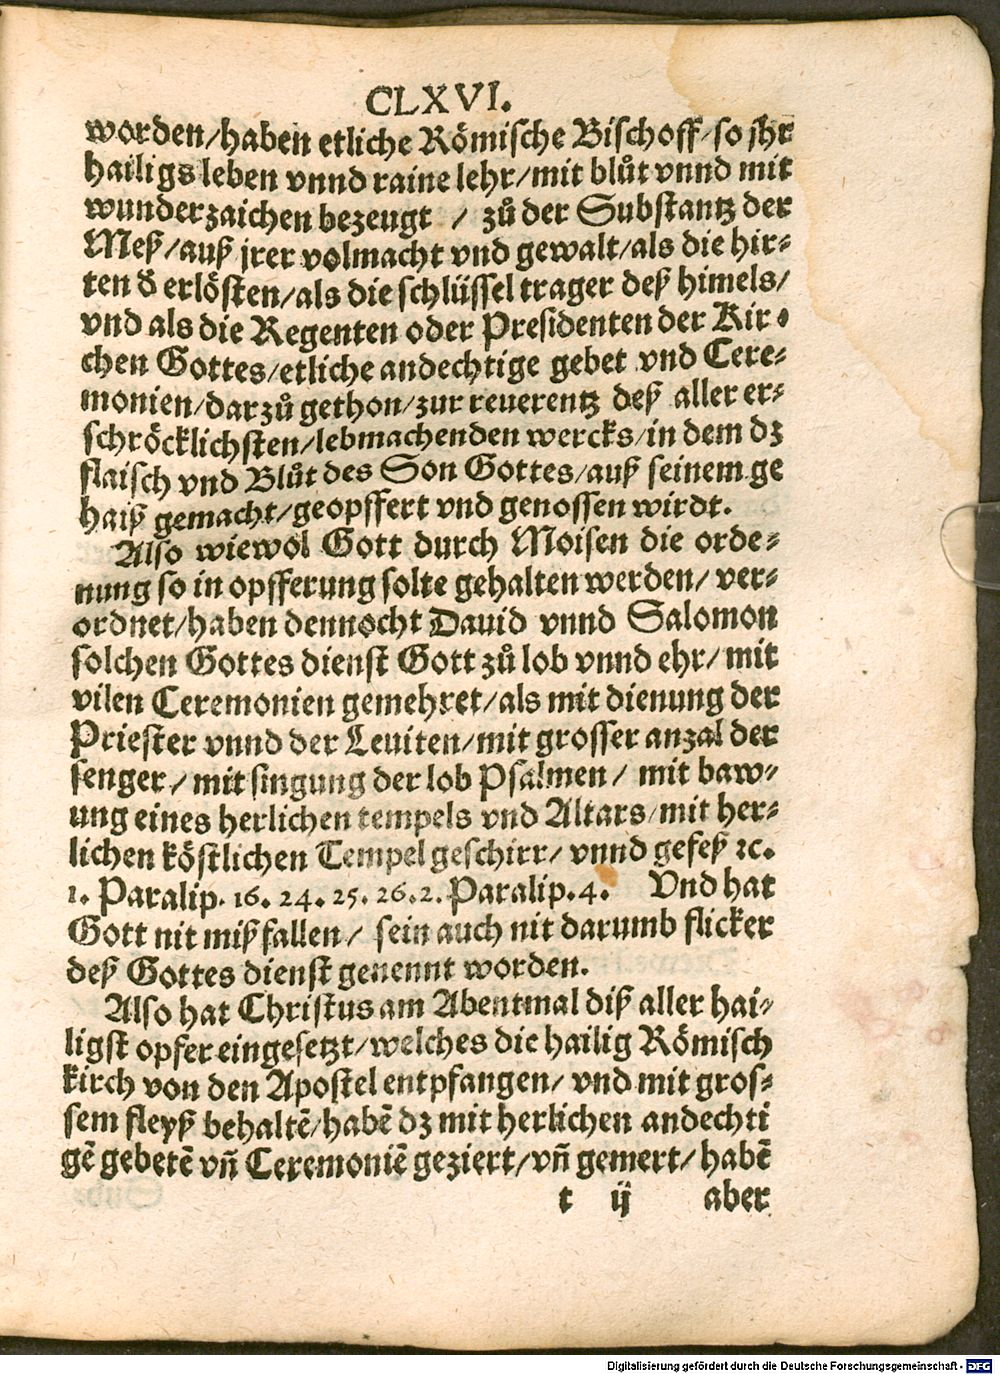 CLXVI.
worden/haben etliche Römische Bischoff/so jhr
hailigs leben vnnd raine lehr/mit blůt vnnd mit
wunderzaichen bezeugt / zů der Substantz der
Meß/auß jrer volmacht vnd gewalt/als die hir-
ten d̄ erlösten/als die schlüssel trager deß himels/
vnd als die Regenten oder Presidenten der Kir-
chen Gottes/etliche andechtige gebet vnd Cere-
monien/darzů gethon/zur reuerentz deß aller er-
schröcklichsten/lebmachenden wercks/in dem dz
flaisch vnd Blůt des Son Gottes/auß seinem ge
haiß gemacht/geopffert vnd genossen wirdt.
Also wiewol Gott durch Moisen die orde-
nung so in opfferung solte gehalten werden/ ver-
ordnet/haben dennocht Dauid vnnd Salomon
solchen Gottes dienst Gott zů lob vnnd ehr/mit
vilen Ceremonien gemehret/als mit dienung der
Priester vnnd der Leuiten/mit grosser anzal der
senger/mit singung der lob Psalmen/ mit baw-
ung eines herlichen tempels vnd Altars/mit her-
lichen köstlichen Tempel geschirr/ vnnd gefeß ꝛc.
1. Paralip. 16. 24. 25. 26. 2. Paralip. 4. Vnd hat
Gott nit mißfallen/ sein auch nit darumb flicker
deß Gottes dienst genennt worden.
Also hat Christus am Abentmal diß aller hai-
ligst opfer eingesetzt/welches die hailig Römisch
kirch von den Apostel entpfangen/ vnd mit gros-
sem fleyß behaltē/habē dz mit herlichen andechti
gē gebetē vn̄ Ceremoniē geziert/vn̄ gemert/habē
t ij aber
Digitalisierung gefördert durch die Deutsche Forschungsgemeinschaft - DFG